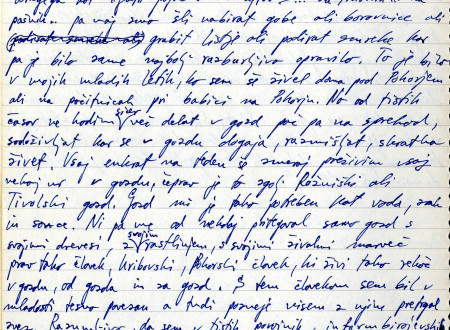 pašnik... pa naj smo šli nabirat gobe ali borovnice ali
grabit listje ali podirat smreke kar
pa je bilo zame najbolj razburljivo opravilo. To je bilo
v mojih mladih letih, ko sem še živel doma pod Pohorjem
ali na počitnicah pri babici na Pohorju. No od tistih
časov ne hodim sicer več delat v gozd pač pa na sprehod,
sodoživljat kar se v gozdu dogaja, razmišljat, skratka
živet. Vsaj enkrat na teden še zmeraj preživim vsaj
nekaj ur v gozdu, čeprav je to zgolj Rožniški ali
Tivolski gozd. Gozd mi je tako potreben kot voda, zrak
in sonce. Ni pa me od nekdaj pritegoval samo gozd s
svojimi drevesi z svojim rastlinjem, s svojimi živalmi marveč
prav tako človek, hribovski, Pohorski človek, ki živi tako rekoč
v gozdu, od gozda in za gozd. S tem človekom sem bil v
mladosti tesno povezan tudi pozneje nisem z njim pretrgal
vez. Razumljivo, da sem v tistih povojnih